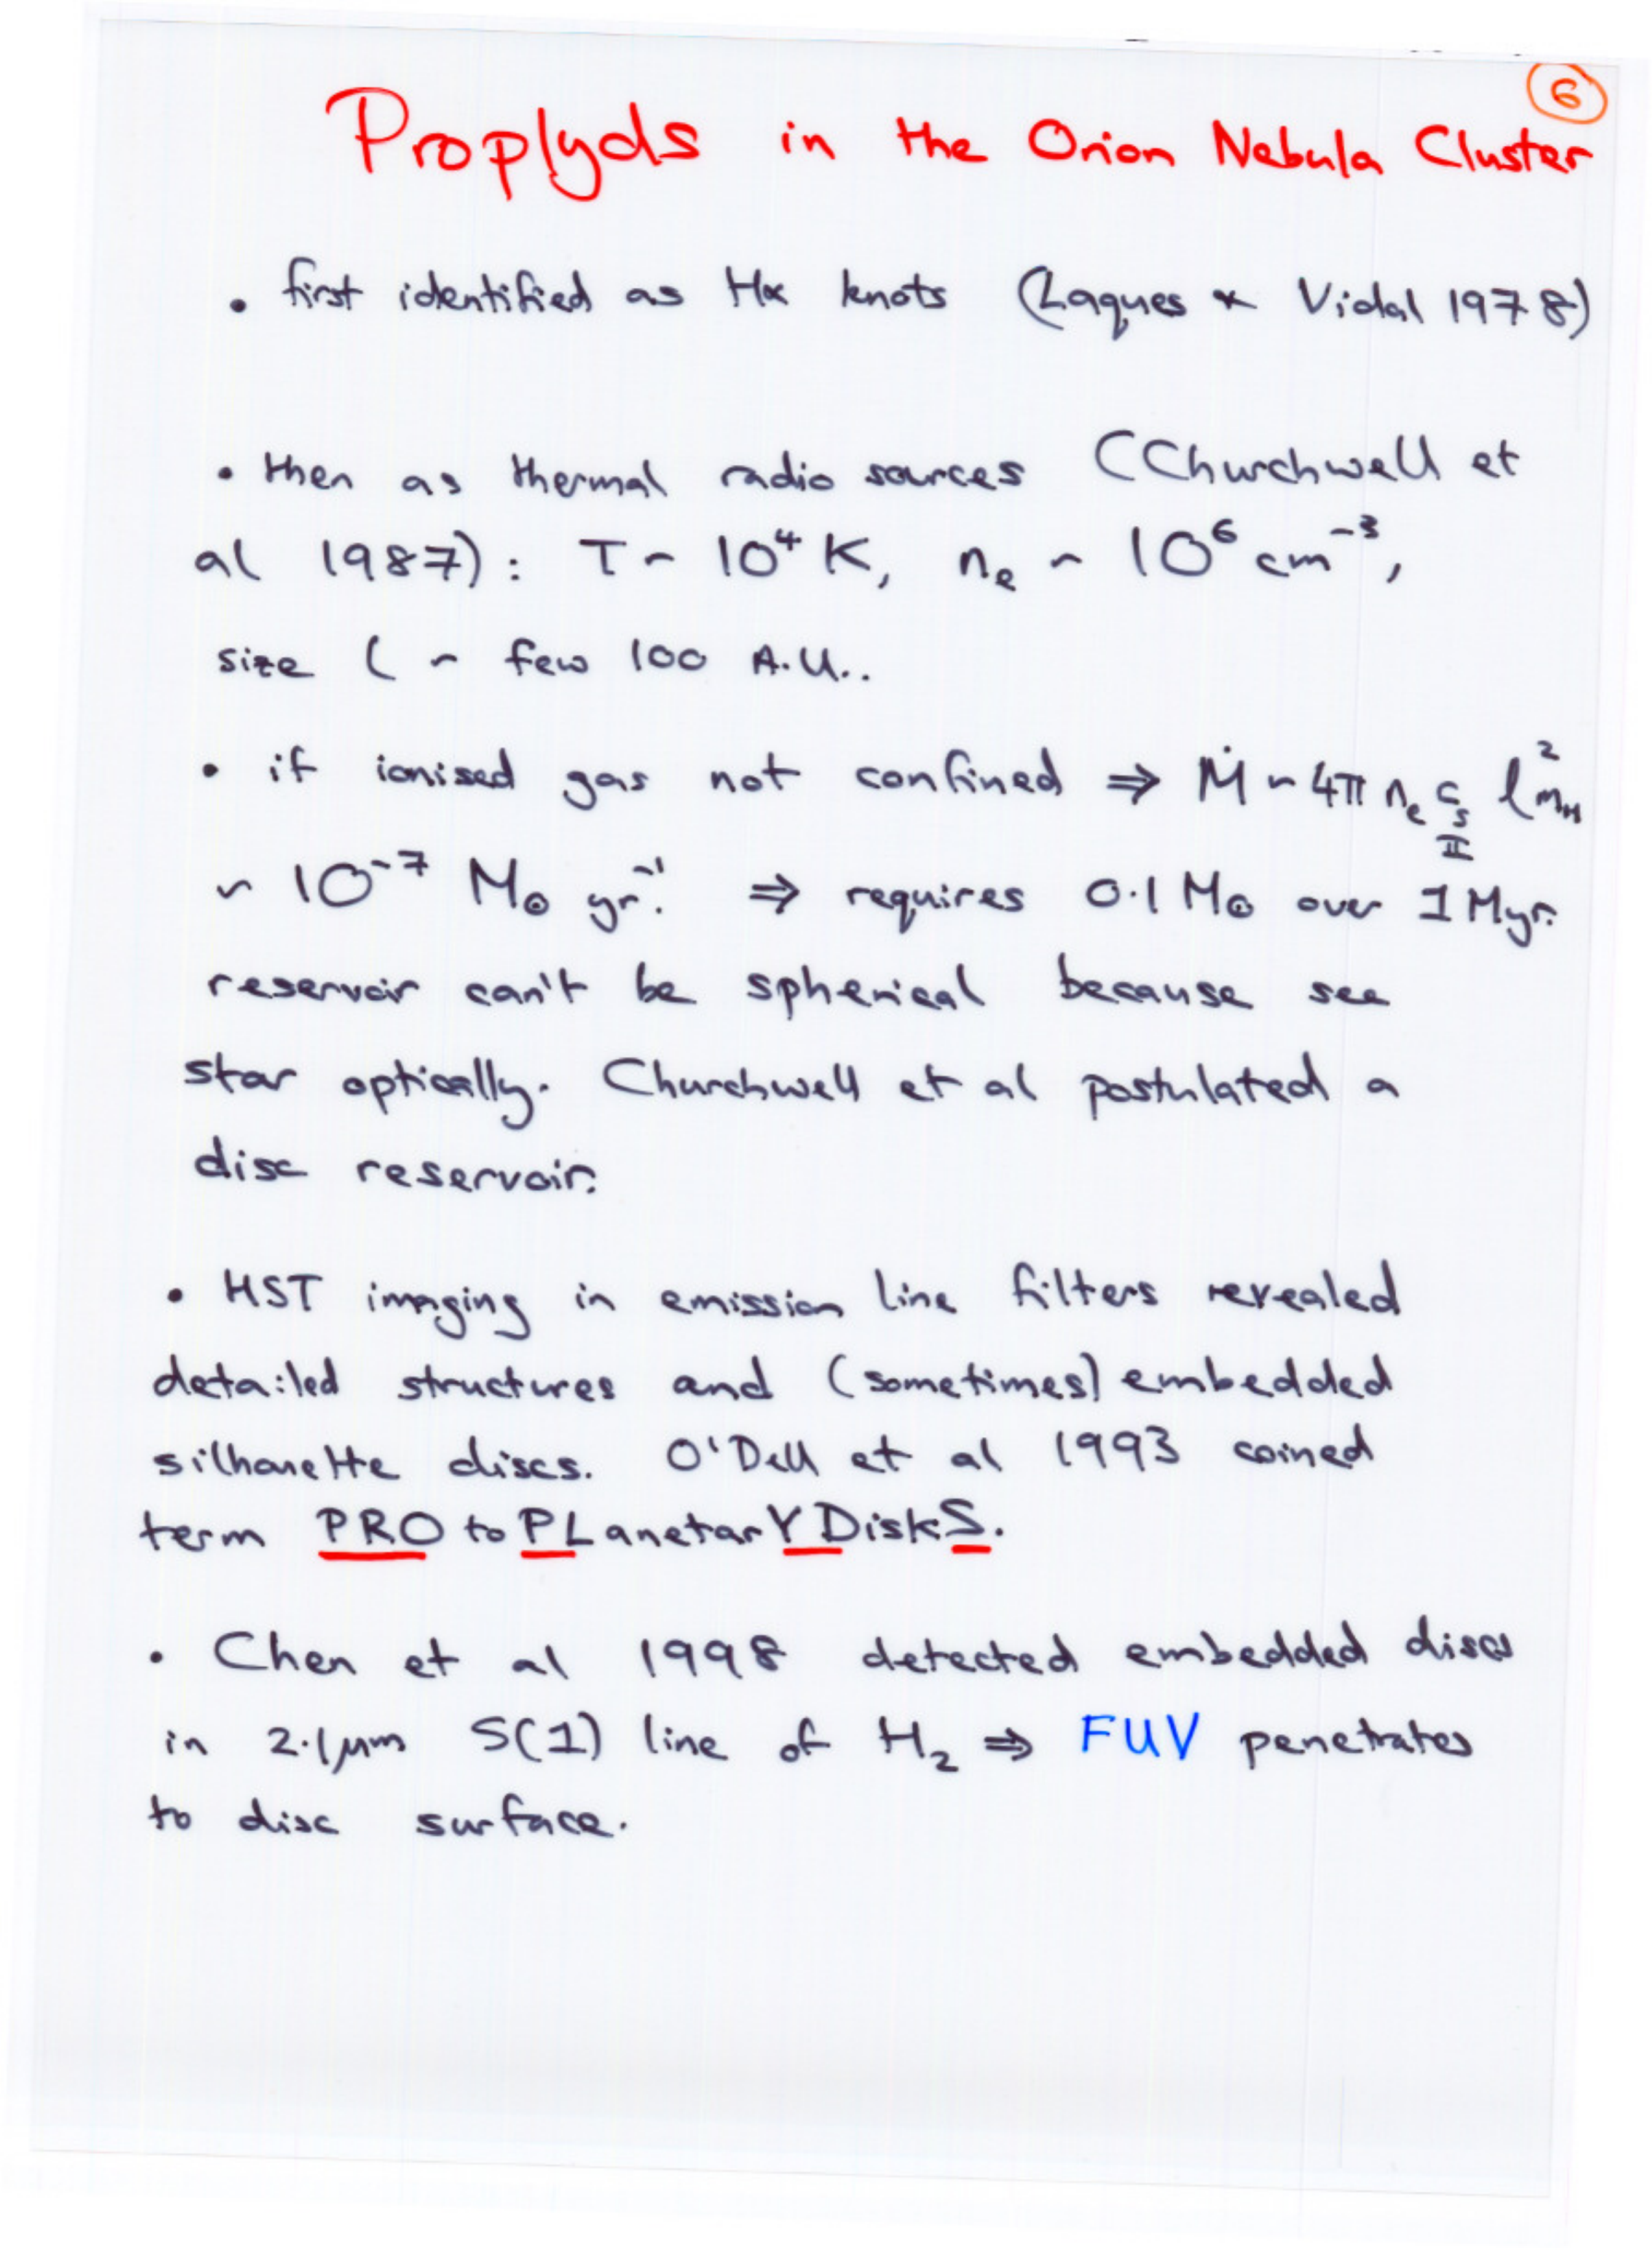 6
Proplyds in the Orion Nebula Cluster
• first identified as Hα knots (Laques & Vidal 1978)
• then as thermal radio sources (Churchwell et
al 1987): T ~ 10⁴ K, nₑ ~ 10⁶ cm⁻³,
size l ~ few 100 A.U..
• if ionised gas not confined ⇒ Ṁ ~ 4π nₑ c_s_II l² m_H
~ 10⁻⁷ M⊙ yr⁻¹. ⇒ requires 0.1 M⊙ over 1 Myr.
reservoir can't be spherical because see
star optically. Churchwell et al postulated a
disc reservoir.
• HST imaging in emission line filters revealed
detailed structures and (sometimes) embedded
silhouette discs. O'Dell et al 1993 coined
term PROtoPLanetarYDiskS.
• Chen et al 1998 detected embedded discs
in 2.1μm S(1) line of H₂ ⇒ FUV penetrates
to disc surface.